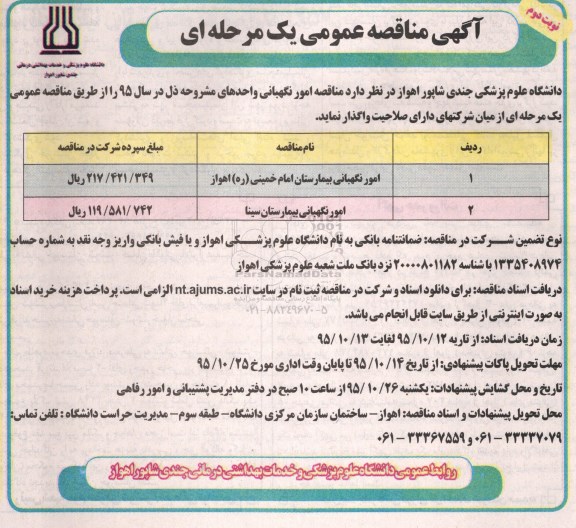 نوبت دوم
آگهی مناقصه عمومی یک مرحله ای
دانشگاه علوم پزشکی و خدمات بهداشتی درمانی
جندی شاپور اهواز
دانشگاه علوم پزشکی جندی شاپور اهواز در نظر دارد مناقصه امور نگهبانی واحدهای مشروحه ذل در سال ۹۵ را از طریق مناقصه عمومی
یک مرحله ای از میان شرکتهای دارای صلاحیت واگذار نماید.
ردیف نام مناقصه مبلغ سپرده شرکت در مناقصه
۱ امور نگهبانی بیمارستان امام خمینی (ره) اهواز ۲۱۷/۴۲۱/۳۴۹ ریال
۲ امور نگهبانی بیمارستان سینا ۱۱۹/۵۸۱/۷۴۲ ریال
نوع تضمین شرکت در مناقصه: ضمانتنامه بانکی به نام دانشگاه علوم پزشکی اهواز و یا فیش بانکی واریز وجه نقد به شماره حساب
۱۳۳۵۴۰۸۹۷۴ با شناسه ۲۰۰۰۰۸۰۱۱۸۲ نزد بانک ملت شعبه علوم پزشکی اهواز
دریافت اسناد مناقصه: برای دانلود اسناد و شرکت در مناقصه ثبت نام در سایت nt.ajums.ac.ir الزامی است. پرداخت هزینه خرید اسناد
به صورت اینترنتی از طریق سایت قابل انجام می باشد.
زمان دریافت اسناد: از تاریه ۹۵/۱۰/۱۲ لغایت ۹۵/۱۰/۱۳
مهلت تحویل پاکات پیشنهادی: از تاریخ ۹۵/۱۰/۱۴ تا پایان وقت اداری مورخ ۹۵/۱۰/۲۵
تاریخ و محل گشایش پیشنهادات: یکشنبه ۹۵/۱۰/۲۶ از ساعت ۱۰ صبح در دفتر مدیریت پشتیبانی و امور رفاهی
محل تحویل پیشنهادات و اسناد مناقصه: اهواز – ساختمان سازمان مرکزی دانشگاه – طبقه سوم – مدیریت حراست دانشگاه : تلفن تماس:
۳۳۳۳۷۰۷۹ – ۰۶۱ و ۳۳۳۶۷۵۵۹ – ۰۶۱
روابط عمومی دانشگاه علوم پزشکی و خدمات بهداشتی درمانی جندی شاپور اهواز